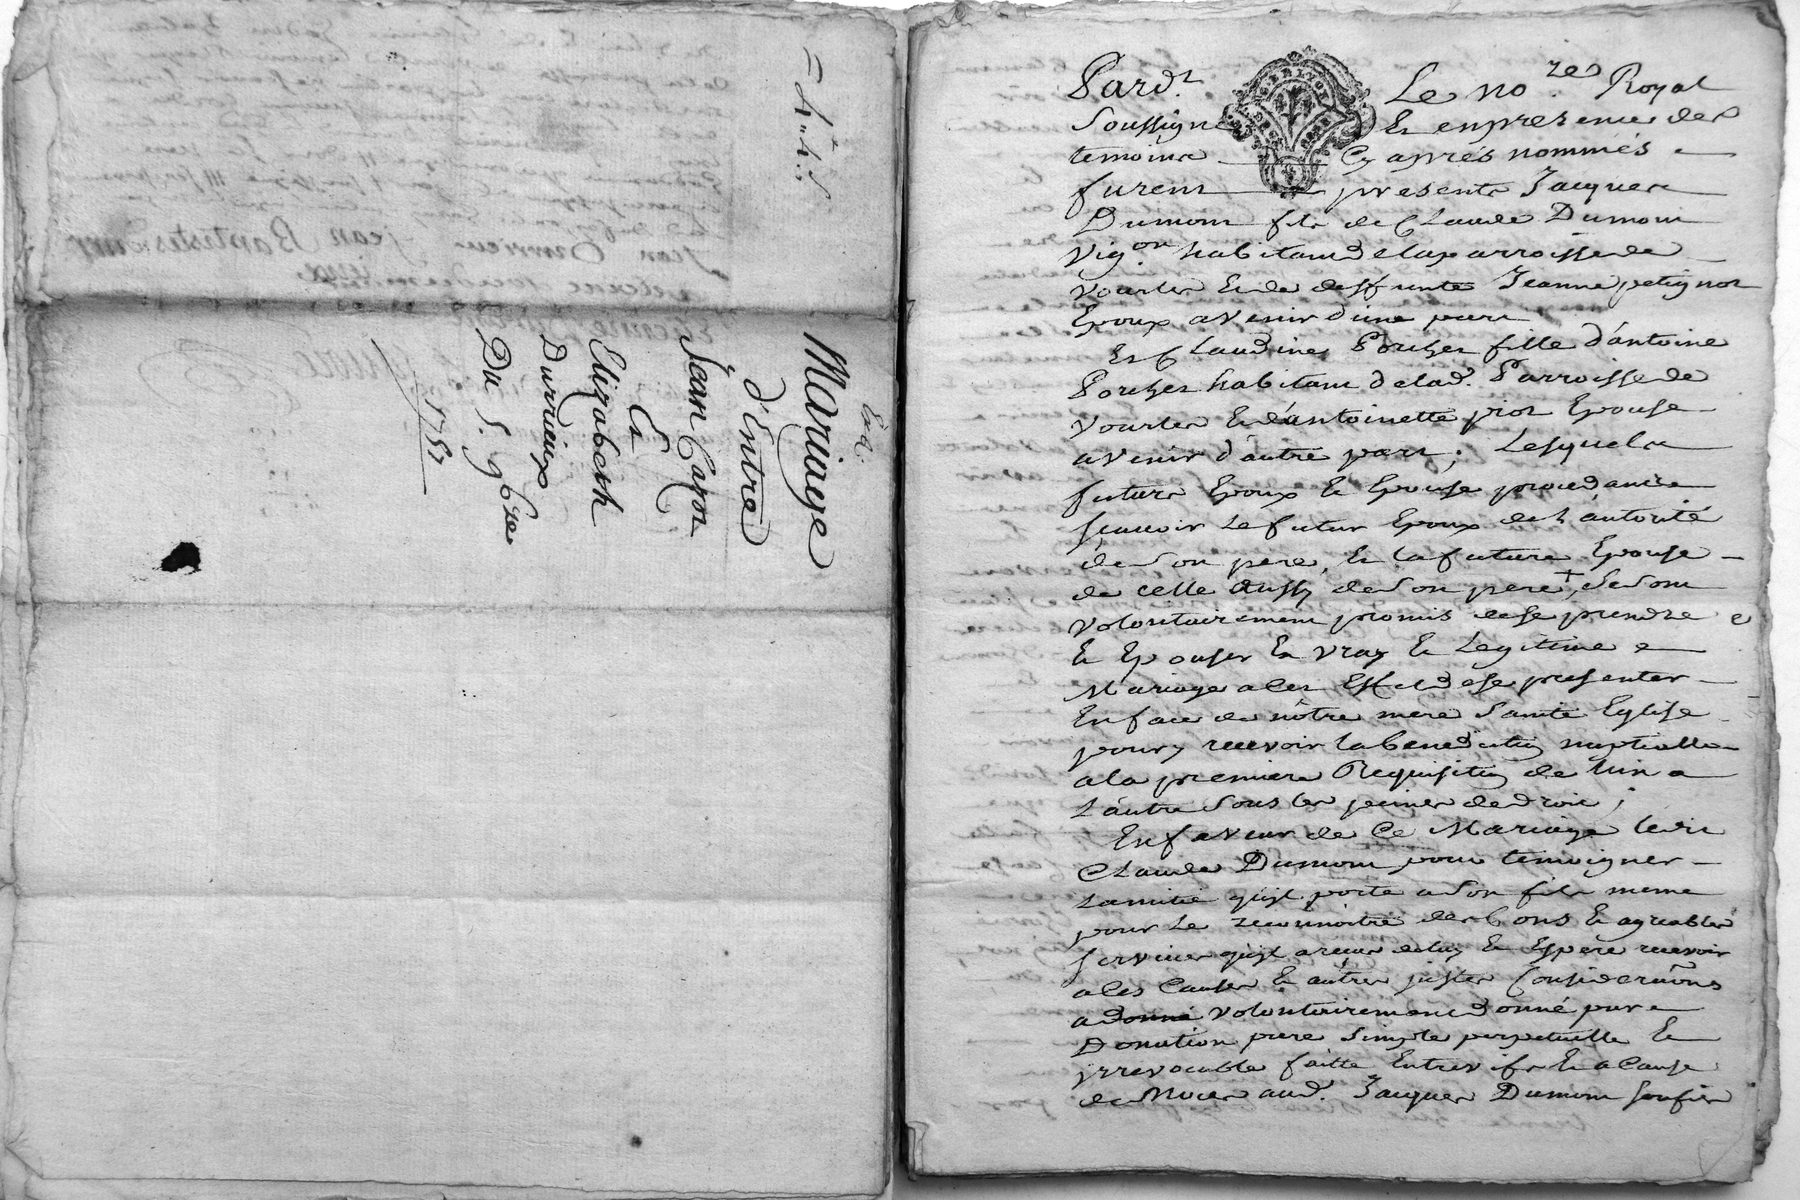 Exd.
Mariage
d'Entre
Jean Capon
Et
Elizabeth
Durrieux
Du 5. 9bre
1757
Jean Baptiste
Pard.t Le no.re Royal
Soussigné Et en presence des
temoins Cy aprés nommés
furent presents Jacques
Dumont fils de Claude Dumont
Vig.on habitant de la parroisse de
Vourles Et de deffunte Jeanne petignot
Epoux avenir d'une part
Et Claudine Porcher fille d'antoine
Porcher habitant de lad. Parroisse de
Vourles Et d'antoinette piot Epouse
avenir d'autre part; Lesquels
futurs Epoux Et Epouse procedants
scavoir Le futur Epoux de L'autorité
de son pere, Et la future Epouse
de celle aussy de son pere, + se sont
volontairement promis de se prendre
Et Epouser En vray Et Legitime
Mariage a Ces Effet de se presenter
En face de nôtre mere Sainte Eglise
pour y recevoir la benediction nuptialle
a la premiere Requisition de L'un a
L'autre sous les peines de droit;
En faveur de Ce Mariage ledit
Claude Dumont pour temoigner
L'amitié qu'il porte a son fils meme
pour Le reconnoitre des bons Et agreables
services qu'il a reçus de luy Et Espere recevoir
a Ces Causes Et autres justes Considerâons
a donné volontairement donné par
Donation pure simple perpetuelle Et
irrevocable faitte Entrevifs Et a Cause
de Noces aud. Jacques Dumont son fils